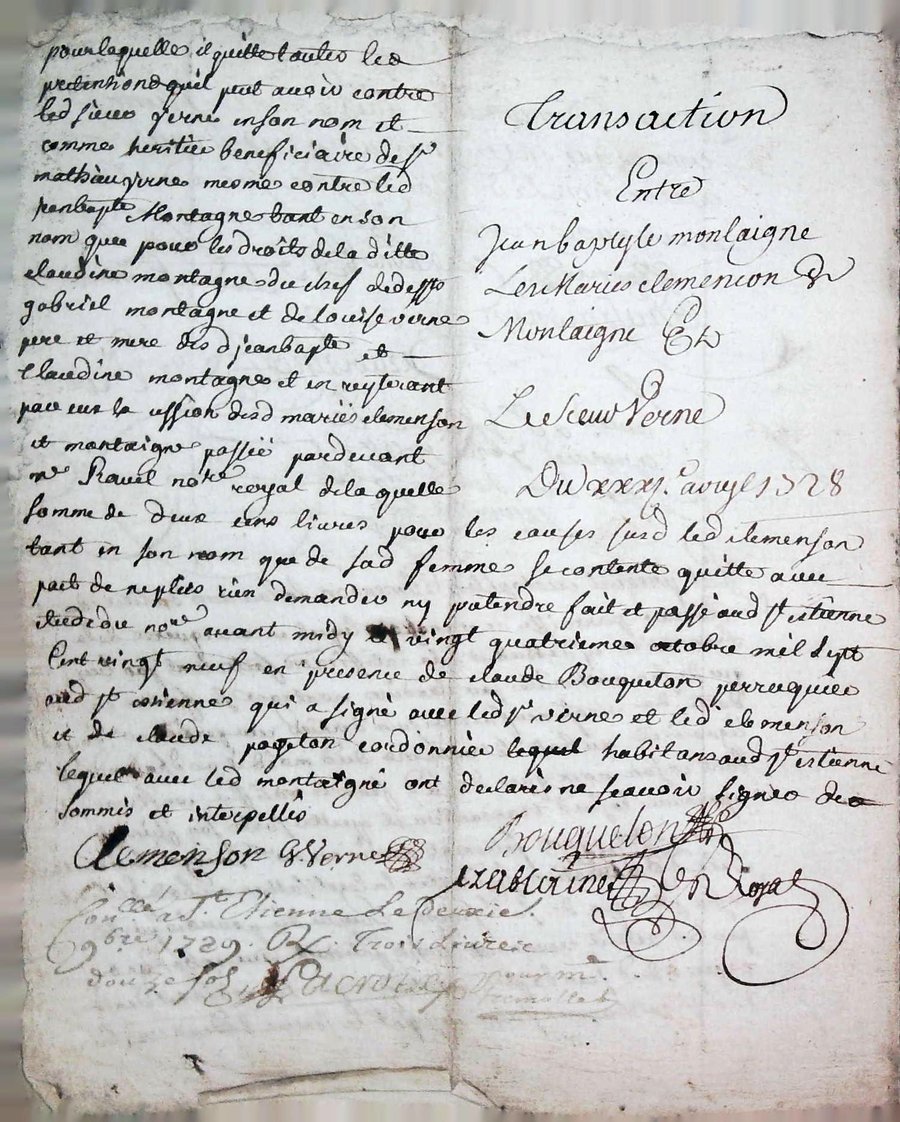 pour laquelle il quitte toutes les
pretentions quil peut avoir contre
led sieur verne en son nom et
comme heritier beneficiaire de sr
mathieu verne mesme contre led
jeanbapte Montagne tant en son
nom que pour les droits de la ditte
claudine montagne du chef de deffs
gabriel montagne et de louise verne
pere et mere desd jeanbapte et
claudine montagne et en reyterant
la cession desd mariés clemenson
et montaigne passée pardevant
me Ravel notre royal de la quelle
somme de deux cens livres pour les causes susd led clemenson
tant en son nom que de sad femme se contente quitte avec
pact de ne plus rien demander ny pretendre fait et passé aud st estienne
etude du nore avant midy vingt quatrieme octobre mil sept
Cent vingt neuf en presence de claude Bouqueton perruquier
aud st estienne qui a signé avec led sr verne et led clemenson
et de claude pageton cordonnier lequel habitans aud st estienne
lequel avec led montaigne ont declarés ne scavoir signer de ce
sommis et interpellés
Clemenson G. Verne Bouqueton
Royal
Conllé a St Etienne Le deuxie.
9bre 1729. R. Trois Livres
douze sols Lacroix pour me
Transaction
Entre
Jean baptyste montaigne
Les Maries clemencon &
Montaigne Et
Le Sieur Verne
Du xxxj.e avryl 1728